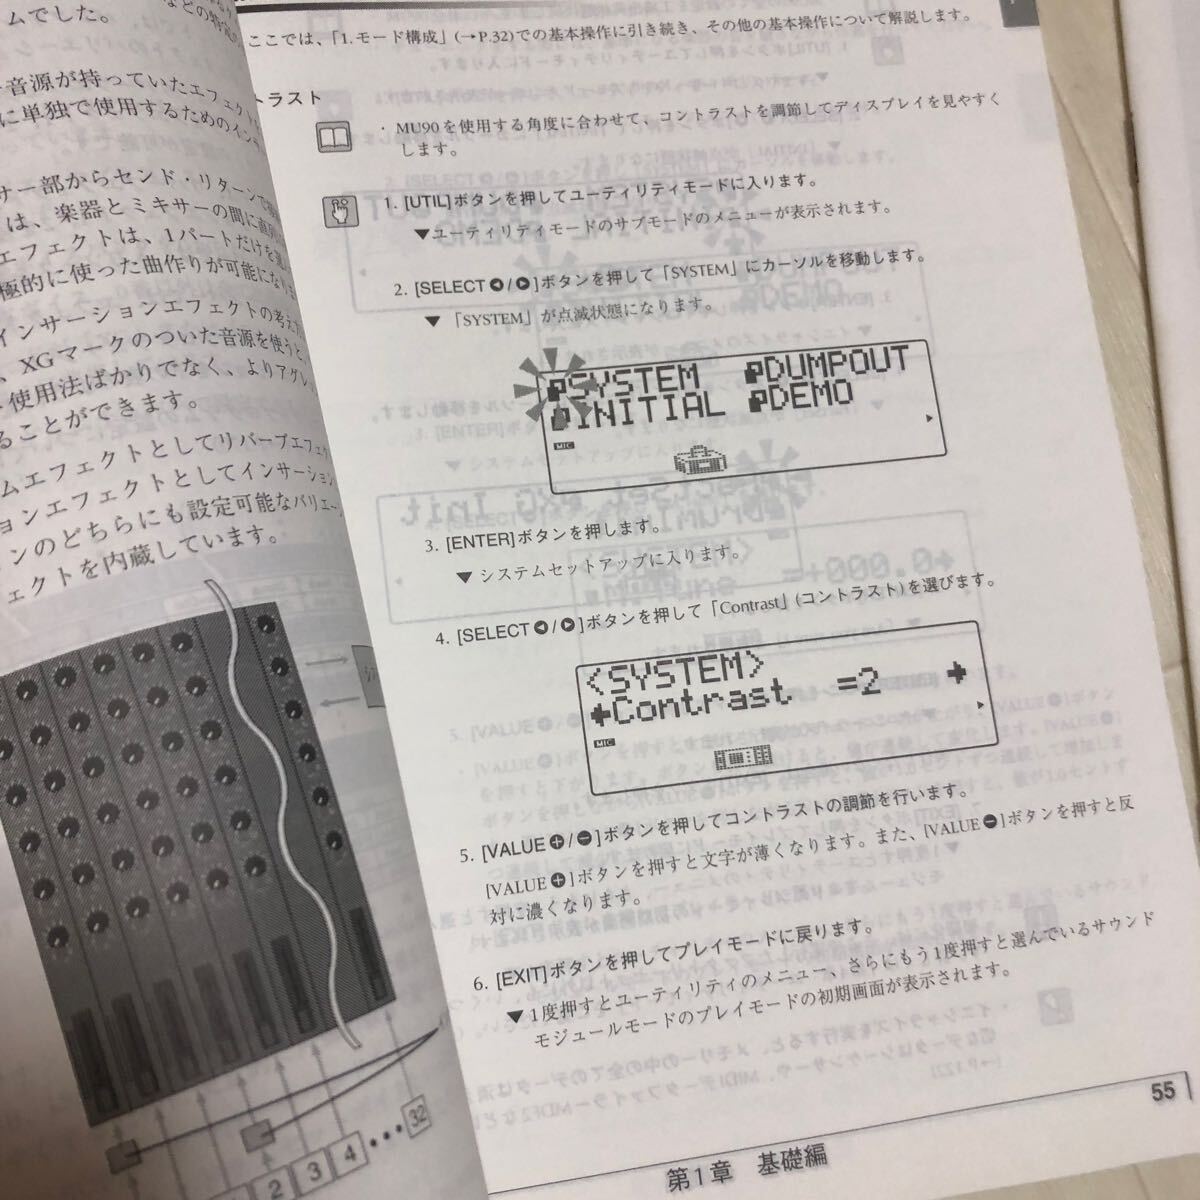 ムでした。
音源が持っていたエフェクト
に単独で使用するためのイン
サー部からセンド・リターンで
は、楽器とミキサーの間に直列
エフェクトは、1パートだけを
極的に使った曲作りが可能になりま
インサーションエフェクトの考え
、XGマークのついた音源を使うと、
使用法ばかりでなく、よりアグレ
ることができます。
ムエフェクトとしてリバーブエフェク
ョンエフェクトとしてインサーション
ンのどちらにも設定可能なバリエー
ェクトを内蔵しています。
2 3 4 ••• 32
ここでは、「1.モード構成」(→P.32)での基本操作に引き続き、その他の基本操作について解説します。
トラスト
・ MU90を使用する角度に合わせて、コントラストを調節してディスプレイを見やすく
します。
1. [UTIL]ボタンを押してユーティリティモードに入ります。
▼ユーティリティモードのサブモードのメニューが表示されます。
2. [SELECT ◀/▶]ボタンを押して「SYSTEM」にカーソルを移動します。
▼ 「SYSTEM」が点滅状態になります。
SYSTEM DUMPOUT
INITIAL DEMO
MIC
3. [ENTER]ボタンを押します。
▼ システムセットアップに入ります。
4. [SELECT ◀/▶]ボタンを押して「Contrast」(コントラスト)を選びます。
<SYSTEM>
Contrast =2
MIC
5. [VALUE ⊕/⊖]ボタンを押してコントラストの調節を行います。
[VALUE ⊕]ボタンを押すと文字が薄くなります。また、[VALUE ⊖]ボタンを押すと反
対に濃くなります。
6. [EXIT]ボタンを押してプレイモードに戻ります。
▼ 1度押すとユーティリティのメニュー、さらにもう1度押すと選んでいるサウンド
モジュールモードのプレイモードの初期画面が表示されます。
第1章 基礎編
55